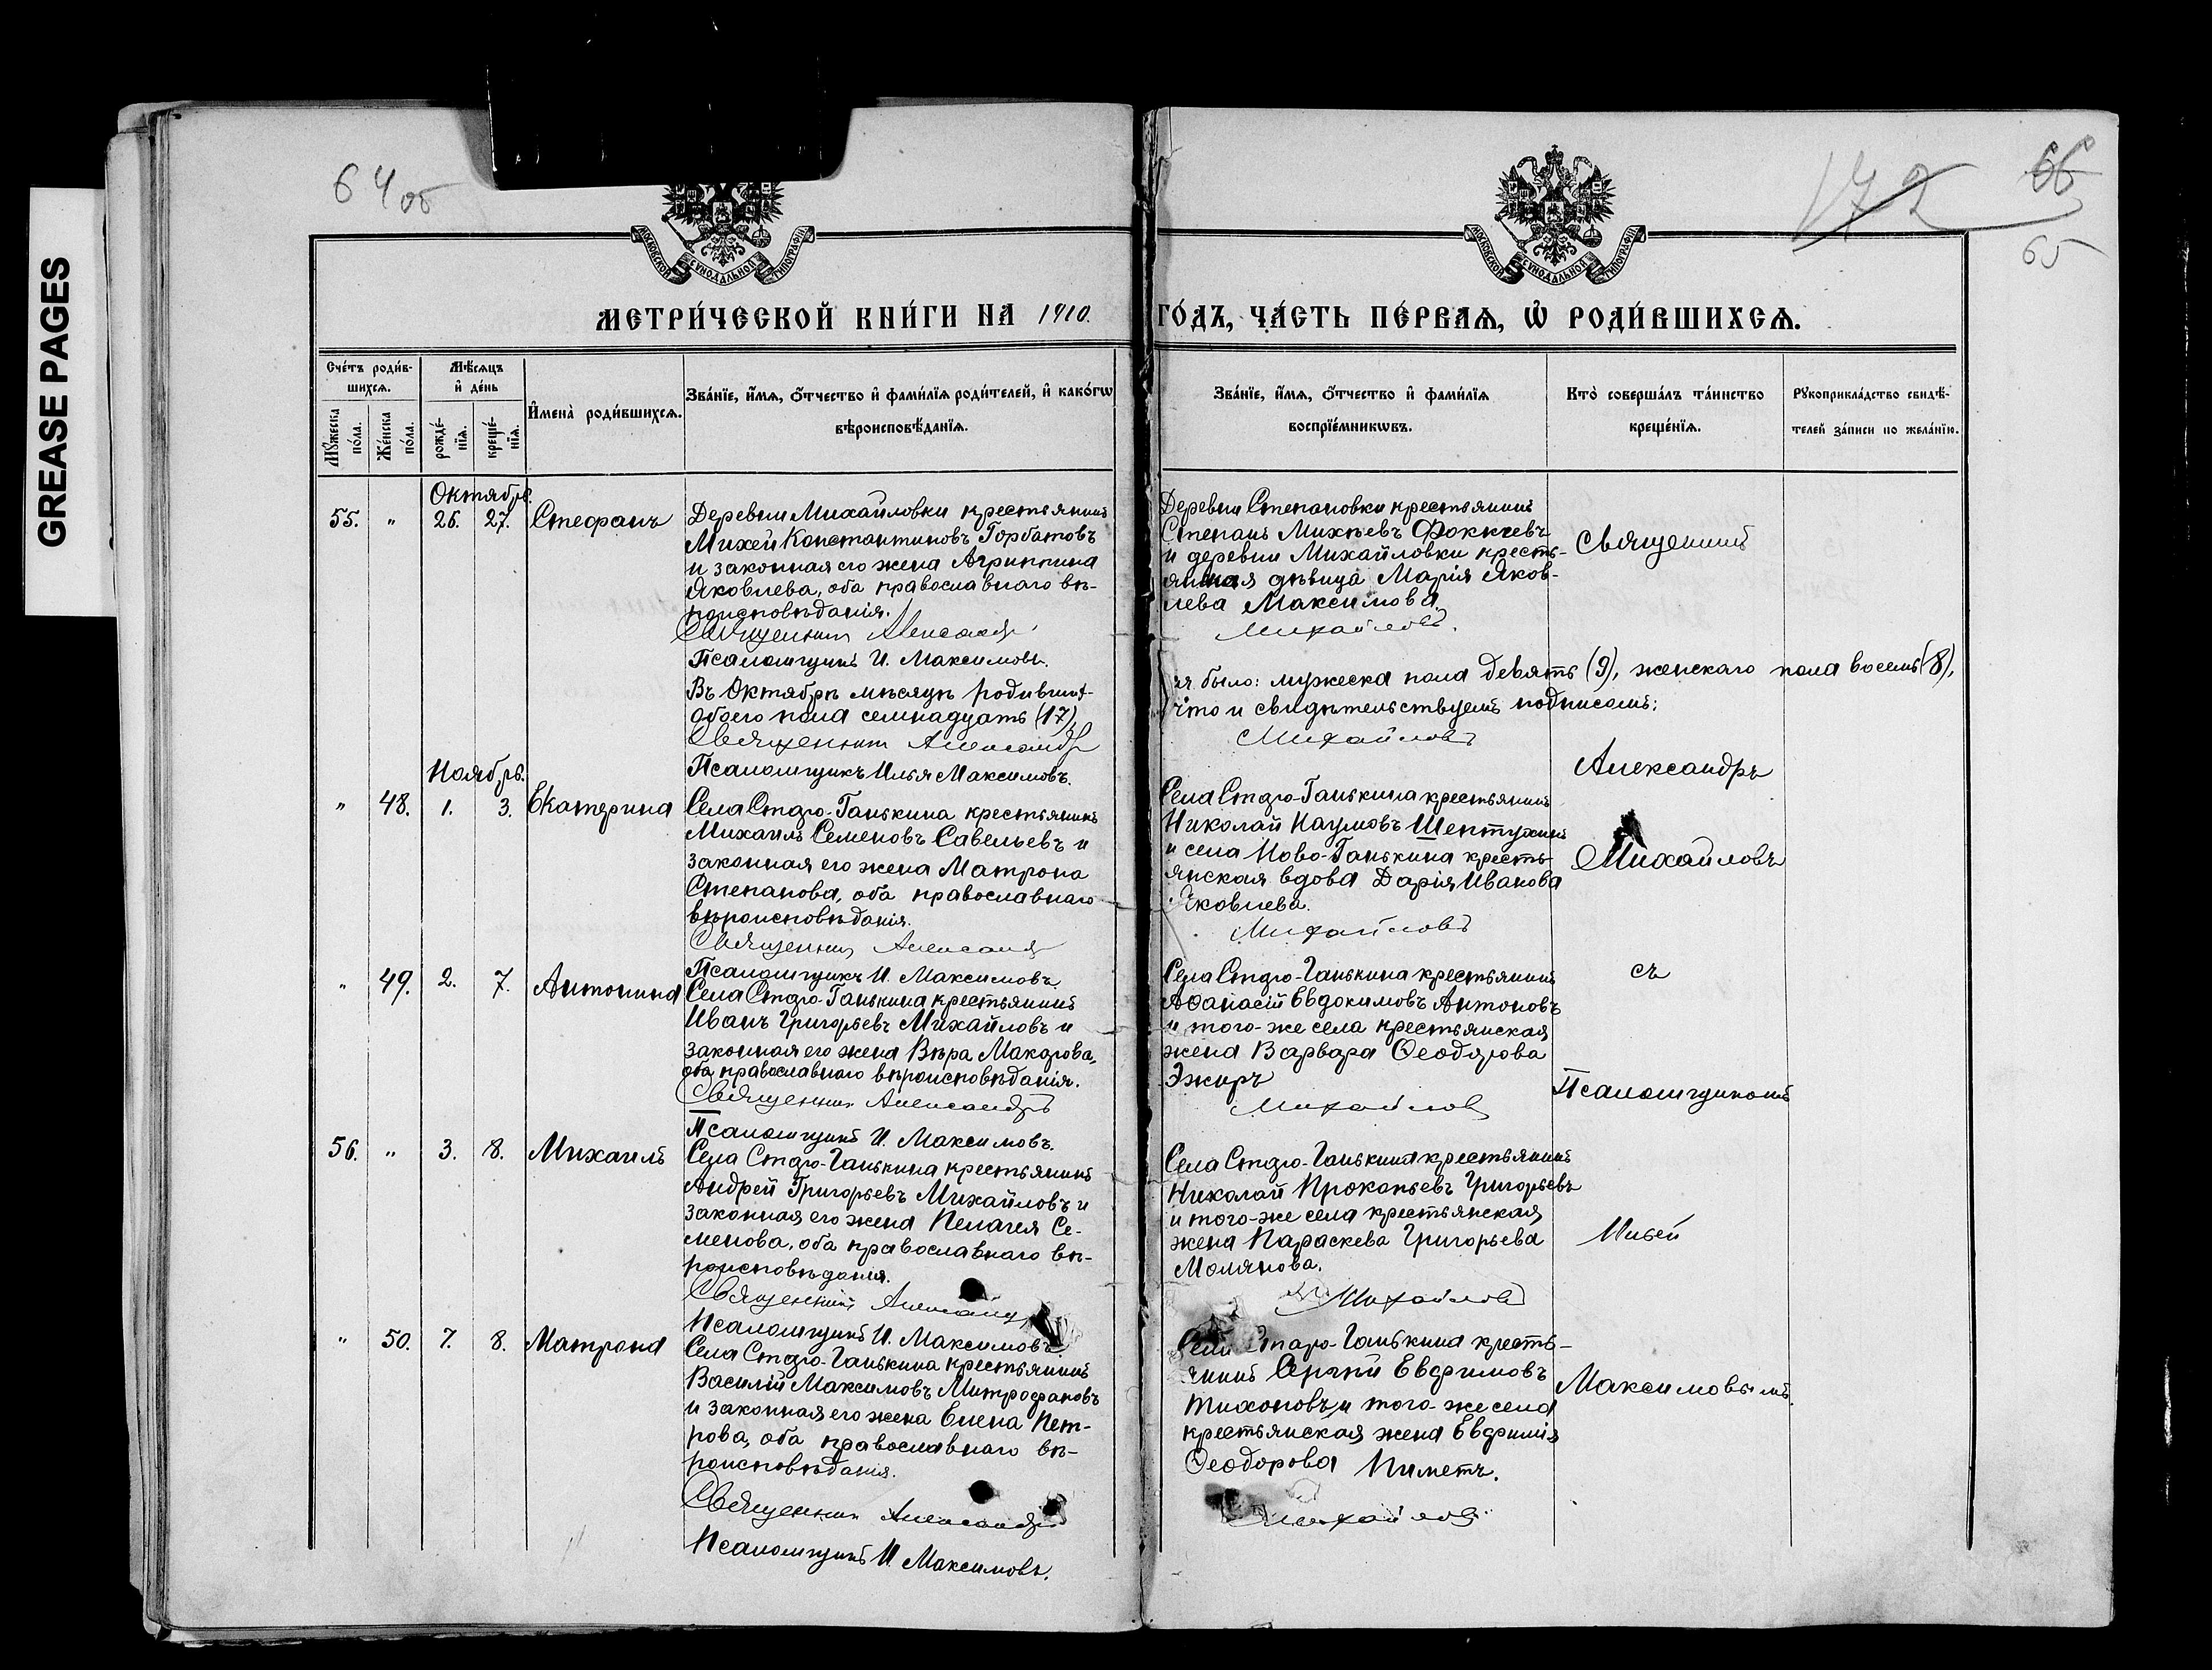 GREASE PAGES
64 об
172
66
65
МОСКОВСКОЙ СѴНОДАЛЬНОЙ ТИПОГРАФІИ
МОСКОВСКОЙ СѴНОДАЛЬНОЙ ТИПОГРАФІИ
МЕТРИ́ЧЕСКОЙ КНИ́ГИ НА 1910. ГО́ДЪ, ЧА́СТЬ ПЕ́РВАѦ, Ѡ҆ РОДИ́ВШИХСѦ.
Сче́тъ роди́в-
шихсѧ.
Мꙋ́жеска по́ла.
Же́нска по́ла.
Мѣ́сѧцъ
и҆ де́нь
рожде́-
нїѧ.
креще́-
нїѧ.
И҆мена̀ роди́вшихсѧ.
Зва́нїе, и҆́мѧ, ѻ҆́тчество и҆ фами́лїѧ роди́телей, и҆ како́гѡ
вѣроисповѣ́данїѧ.
Зва́нїе, и҆́мѧ, ѻ҆́тчество и҆ фами́лїѧ
воспрїе́мникѡвъ.
Кто̀ соверша́лъ та́инство
креще́нїѧ.
Рꙋкоприкла́дство свидѣ́-
телей за́писи по жела́нїю.
Октябрь.
55. " 26. 27. Стефанъ
Деревни Михайловки крестьянинъ
Михей Константиновъ Горбатовъ
и законная его жена Агриппина
Яковлева, оба православнаго вѣ-
роисповѣданія.
Священник Александр
Псаломщикъ И. Максимовъ.
Деревни Степановки крестьянинъ
Степанъ Михѣевъ
и деревни Михайловки кресть-
янская дѣвица Марія Яков-
лева Максимова.
Михайловъ.
Священникъ
Въ Октябрѣ мѣсяцѣ родивших-
обоего пола семнадцать (17),
Священник Александр
Псаломщикъ Илья Максимовъ.
ся было: мужеска пола девять (9), женскаго пола восемь (8),
что и свидѣтельствуемъ подписомъ:
Михайловъ
Ноябрь.
" 48. 1. 3. Екатерина
Села Старо-Ганькина крестьянинъ
Михаилъ Семеновъ Савельевъ и
законная его жена Матрона
Степанова, оба православнаго
вѣроисповѣданія.
Священник Александр
Псаломщикъ И. Максимовъ.
Села Старо-Ганькина крестьянинъ
Николай Наумовъ Шептухинъ
и села Ново-Ганькина кресть-
янская вдова Дарія Иванова
Яковлева.
Михайловъ
Александръ
Михайловъ
" 49. 2. 7. Антонина
Села Старо-Ганькина крестьянинъ
Иванъ Григорьевъ Михайловъ и
законная его жена Вѣра Макарова,
оба православнаго вѣроисповѣданія.
Священник Александръ
Псаломщикъ И. Максимовъ.
Села Старо-Ганькина крестьянинъ
Аѳанасій Евдокимовъ Антоновъ
и того-же села крестьянская
жена Варвара Ѳеодорова
Михайлов
съ
Псаломщикомъ
56. " 3. 8. Михаилъ
Села Старо-Ганькина крестьянинъ
Андрей Григорьевъ Михайловъ и
законная его жена Пелагея Се-
менова, оба православнаго вѣ-
роисповѣданія.
Священникъ Александр
Псаломщикъ И. Максимовъ.
Села Старо-Ганькина крестьянинъ
Николай Прокопьевъ Григорьевъ
и того-же села крестьянская
жена Параскева Григорьева
Молянова.
Михайлов
Ильей
" 50. 7. 8. Матрона
Села Старо-Ганькина крестьянинъ
Василій Максимовъ Митрофановъ
и законная его жена Елена Пет-
рова, оба православнаго вѣ-
роисповѣданія.
Священник Александр
Псаломщикъ И. Максимовъ.
Села Старо-Ганькина кресть-
янинъ Сергѣй Евфимовъ
Тихоновъ и того-же села
крестьянская жена Евфимія
Ѳеодорова
Михайлов
Максимовымъ.